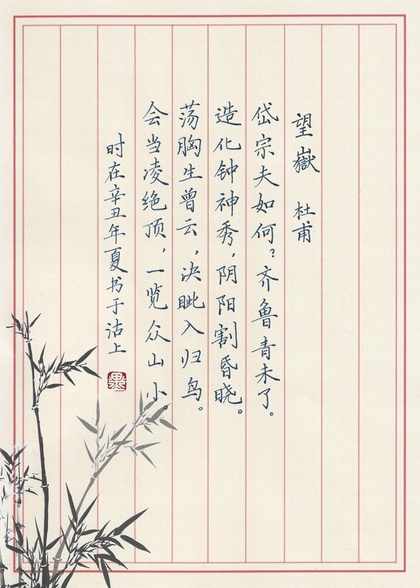 望嶽 杜甫
岱宗夫如何？齐鲁青未了。
造化钟神秀，阴阳割昏晓。
荡胸生曾云，决眦入归鸟。
会当凌绝顶，一览众山小。
时在辛丑年夏书于沽上